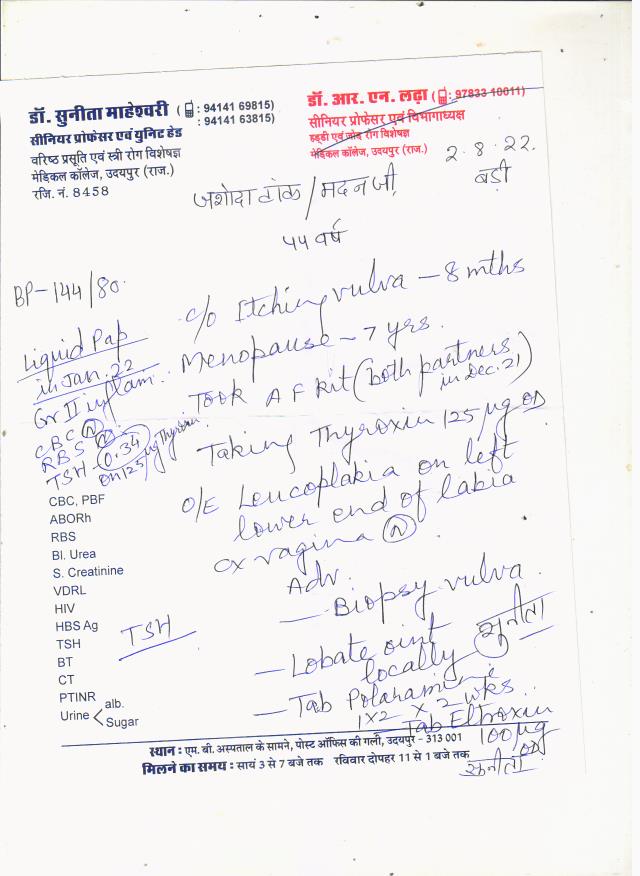 डॉ. सुनीता माहेश्वरी ( : 94141 69815)
: 94141 63815)
सीनियर प्रोफेसर एवं यूनिट हेड
वरिष्ठ प्रसूति एवं स्त्री रोग विशेषज्ञ
मेडिकल कॉलेज, उदयपुर (राज.)
रजि. नं. 8458
डॉ. आर. एन. लढ़ा ( : 97833 10011)
सीनियर प्रोफेसर एवं विभागाध्यक्ष
हड्डी एवं जोड़ रोग विशेषज्ञ
मेडिकल कॉलेज, उदयपुर (राज.)
2.8.22.
बड़ी
जशोदा टांक / मदन जी
५५ वर्ष
BP-144/80
Liquid Pap
in Jan. 22
Gr II inflam.
CBC (N)
RBS (N)
TSH - 0.34
on 125 µg Thyroxin
c/o Itching vulva - 8 mths
Menopause - 7 yrs.
Took AF Kit (both partners
in Dec. 21)
Taking Thyroxin 125 µg OD
O/E Leucoplakia on left
lower end of labia
cx vagina (N)
Adv.
— Biopsy vulva.
— Lobate oint
locally
सुनीता
— Tab Polaramine
1x2 x 2 wks.
— Tab Eltroxin
100 µg
OD
सुनीता
CBC, PBF
ABORh
RBS
Bl. Urea
S. Creatinine
VDRL
HIV
HBS Ag
TSH
BT
CT
PTINR
Urine < alb.
Sugar
TSH
स्थान : एम. बी. अस्पताल के सामने, पोस्ट ऑफिस की गली, उदयपुर - 313 001
मिलने का समय : सायं 3 से 7 बजे तक रविवार दोपहर 11 से 1 बजे तक